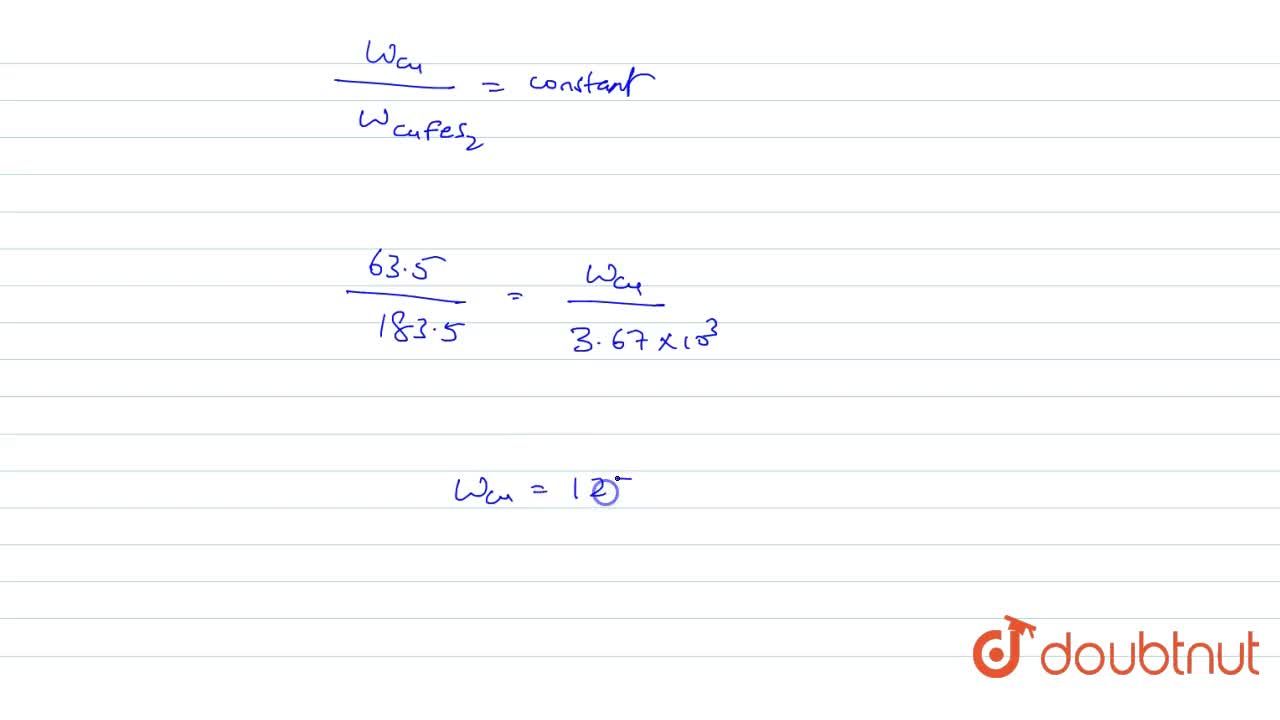 W_Cu / W_CuFeS₂ = constant
63.5 / 183.5 = W_Cu / 3.67 × 10³
W_Cu = 12
doubtnut